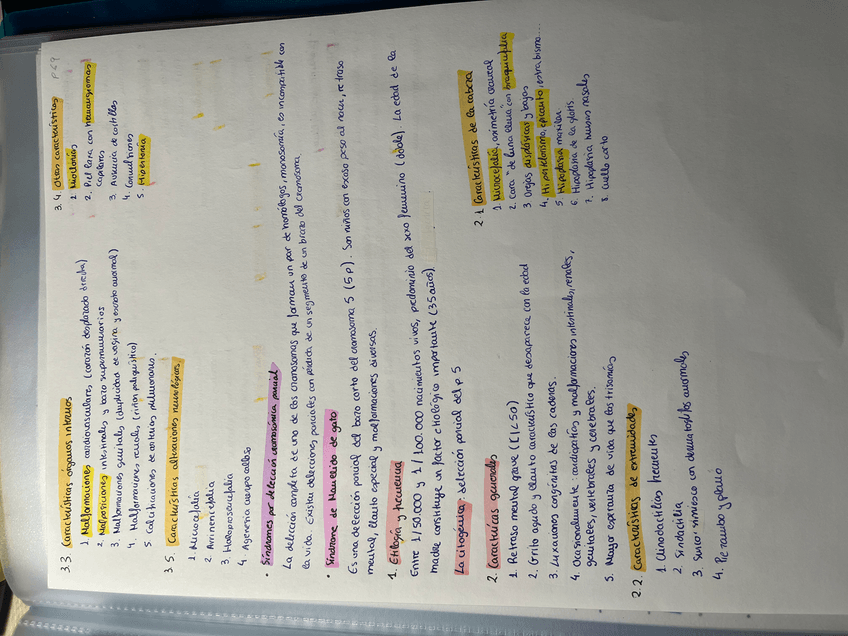 3.3 Características órganos internos
1. Malformaciones cardiovasculares (corazón desplazado derecha)
2. Malposiciones intestinales y bazo supernumerarios
3. Malformaciones genitales (duplicidad de vagina y escroto anormal)
4. Malformaciones renales (riñon poliquístico)
5. Calcificaciones de arterias pulmonares.
3.4. Otras características P69
1. Mioclonias
2. Piel laxa con Hemangiomas
capilares
3. Ausencia de costillas
4. Convulsiones
5. Hipertonia
3.5. Características alteraciones neurológicas
1. Microcefalia
2. Arrinencefalia
3. Holoprosencefalia
4. Agenesia cuerpo calloso
• Síndromes por delección cromosómica parcial
La delección completa de uno de los cromosomas que forman un par de homólogos, monosomía, es incompatible con
la vida. Existen delecciones parciales con pérdida de un segmento de un brazo del cromosoma.
• Síndrome de Maullido de gato
Es una delección parcial del bazo corto del cromosoma 5 (5p). Son niños con escaso peso al nacer, retraso
mental, llanto especial y malformaciones diversas.
1. Etiología y frecuencia
Entre 1/50.000 y 1/100.000 nacimientos vivos, predominio del sexo femenino (doble). La edad de la
madre constituye un factor etiológico importante (35 años)
La citogenica: delección parcial del p5
2. Características generales
1. Retraso mental grave (CI<50)
2. Grito agudo y llanto característico que desaparece con la edad
3. Luxaciones congénitas de las caderas.
4. Ocasionalmente: cardiopatías y malformaciones intestinales, renales,
genitales, vertebrales y cerebrales.
5. Mayor esperanza de vida que las trisomías
2.1 Características de la cabeza
1. Microcefalia, asimetría craneal
2. Cara "de luna llena" con braquicefalia
3. Orejas displásicas y bajas
4. Hipertelorismo, epicanto, estrabismo...
5. Hipoplasia maxilar
6. Hipoplasia de la glotis.
7. Hipoplasia huesos nasales
8. Cuello corto
2.2. Características de extremidades
1. Clinodactilias frecuentes
2. Sindactilia
3. Surco simiesco con dermatoglifos anormales
4. Pie zambo y plano